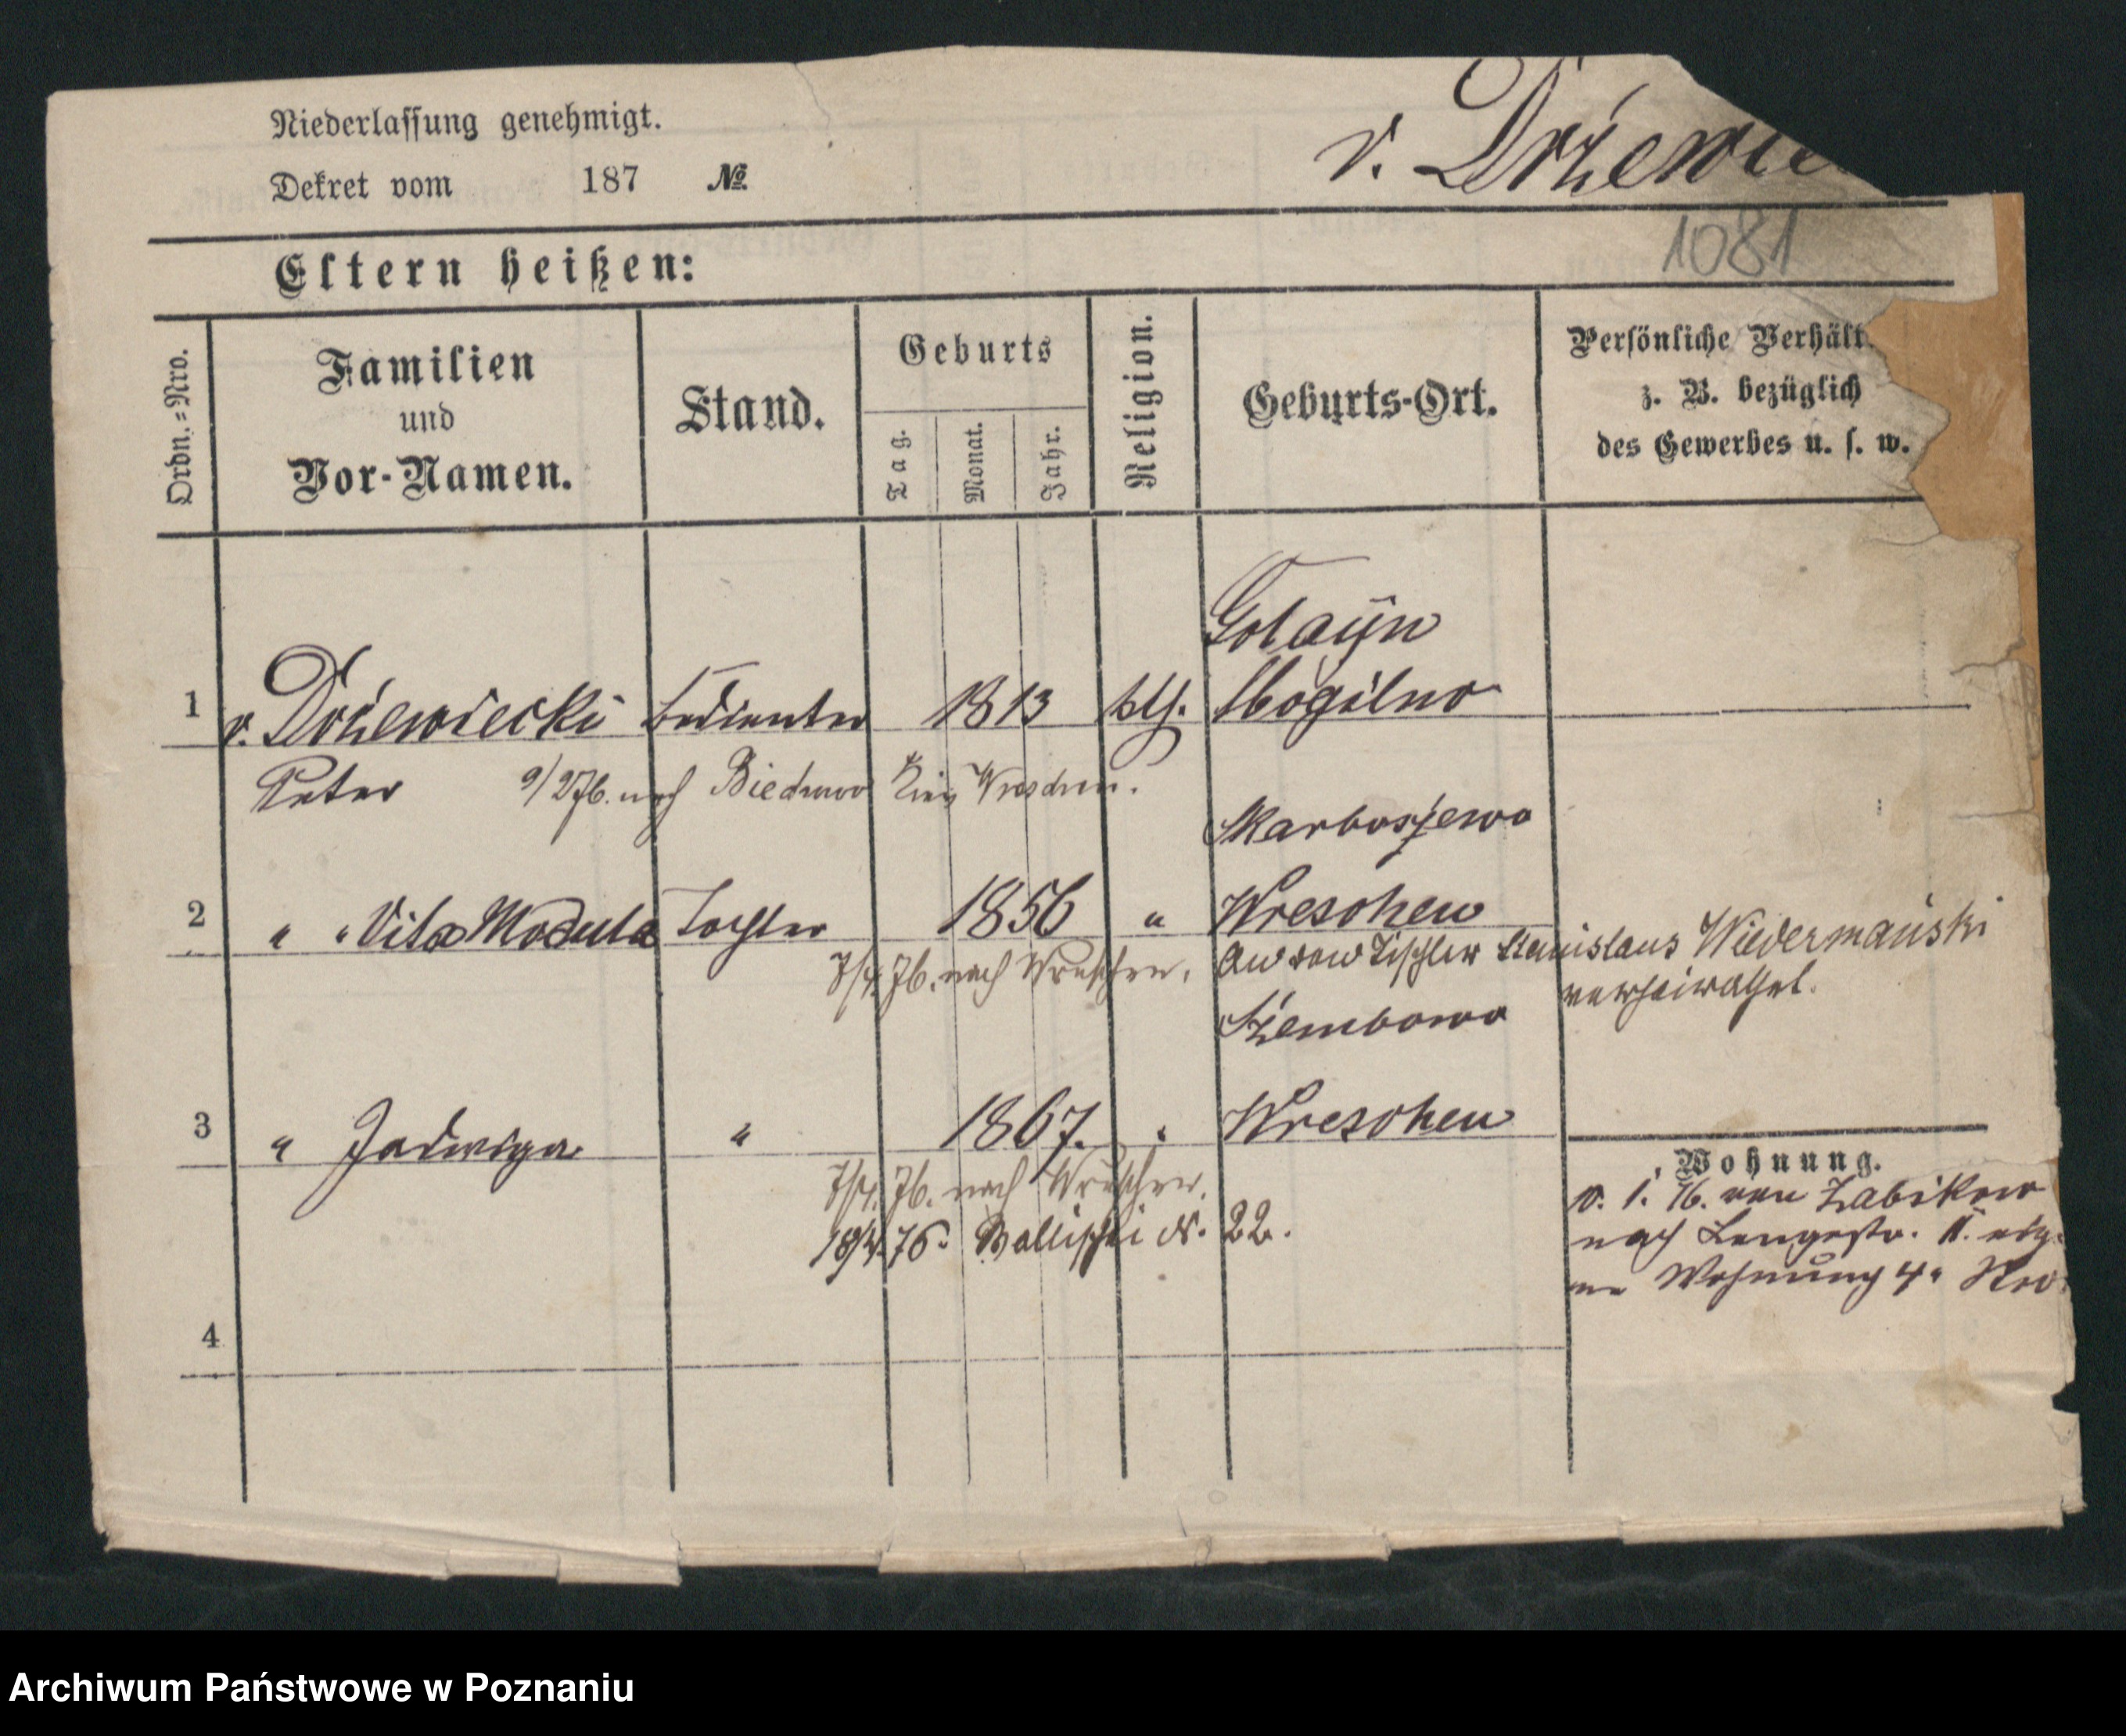 Niederlassung genehmigt.
Dekret vom 187 №
v. Drżewie
1081
Eltern heißen:
Ordn.=Nro.
Familien
und
Vor-Namen.
Stand.
Geburts
Tag.
Monat.
Jahr.
Religion.
Geburts-Ort.
Persönliche Verhält
z. B. bezüglich
des Gewerbes u. s. w.
Golaÿn
1 v. Drżewiecki Bedienter 1813 kth. Mogilno
Peter 9/2 76. nach Krs. Wreschen.
Skarboszewo
2 " " Vita Tochter 1856 " Wreschen
an den Tischler Stanislaus Wiedermański
verheirathet.
7/4. 76. nach Wreschen.
Szembowo
3 " Jadwiga " 1867. " Wreschen
7/4. 76. nach Wreschen.
18/4. 76. Wallischei N. 22.
Wohnung.
10. 1. 76. von Zabikowo
nach Langestr. 11.
Wohnung 4.
4
Archiwum Państwowe w Poznaniu